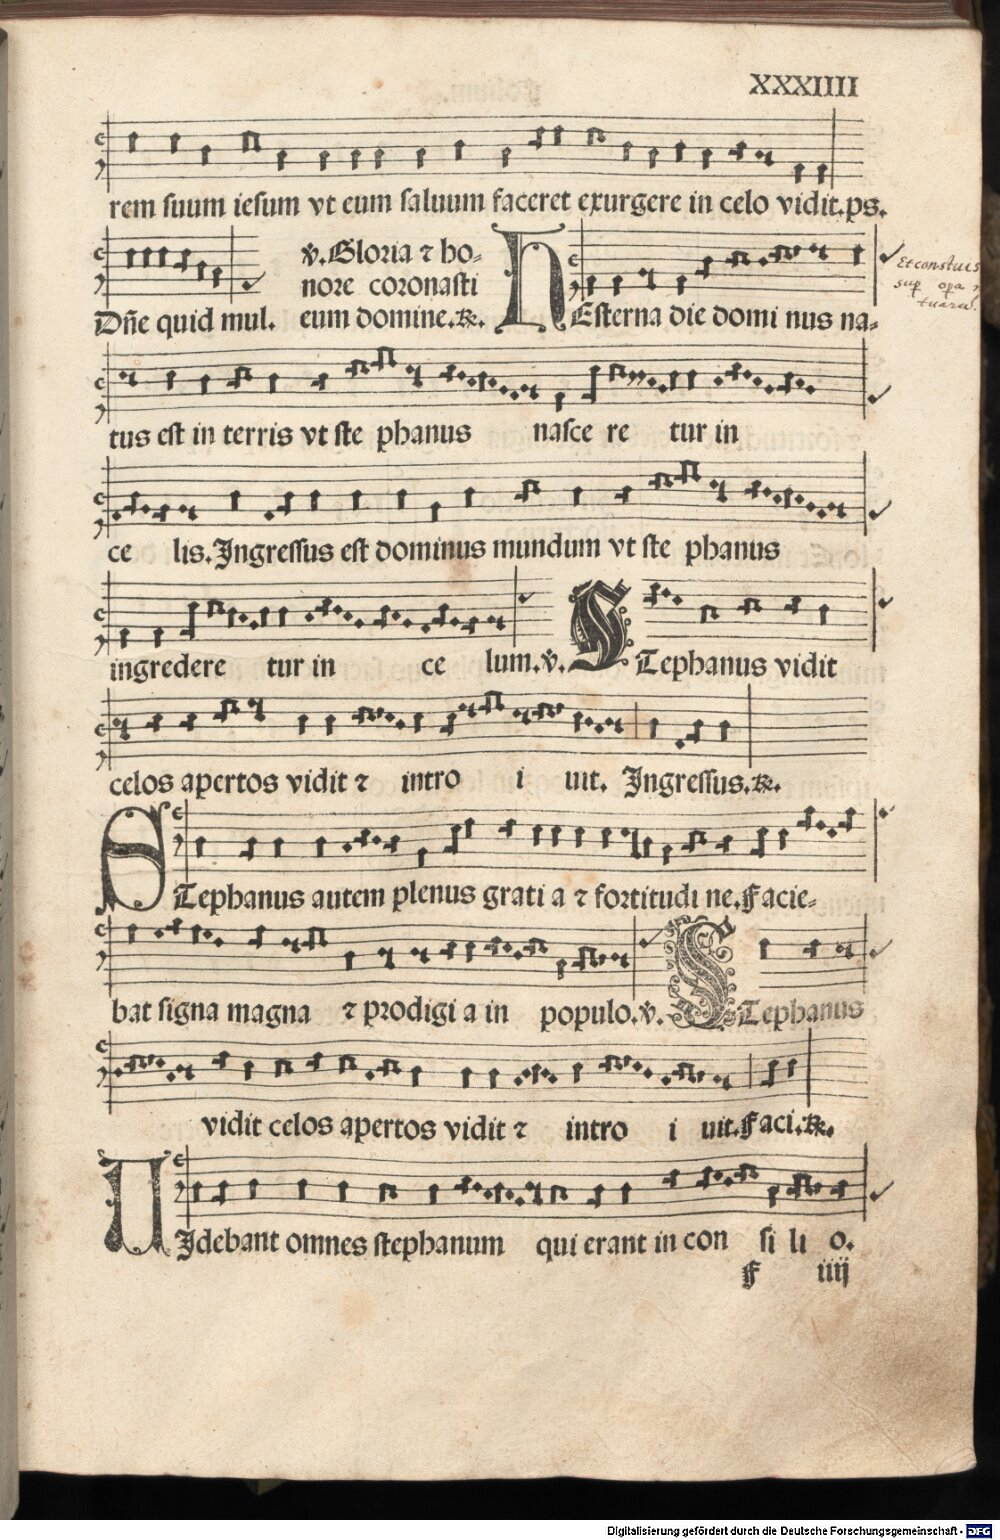 XXXIIII
rem suum iesum vt eum saluum faceret exurgere in celo vidit.ps.
Dñe quid mul.
℣.Gloria ⁊ ho⸗
nore coronasti
eum domine.℟.
HEsterna die domi nus na⸗
Et constuis
sup opa
tuaru.
tus est in terris vt ste phanus nasce re tur in
ce lis.Ingressus est dominus mundum vt ste phanus
ingredere tur in ce lum.℣. STephanus vidit
celos apertos vidit ⁊ intro i uit. Ingressus.℟.
STephanus autem plenus grati a ⁊ fortitudi ne.Facie⸗
bat signa magna ⁊ prodigi a in populo.℣. STephanus
vidit celos apertos vidit ⁊ intro i uit.Faci.℟.
UIdebant omnes stephanum qui erant in con si li o.
F iiij
Digitalisierung gefördert durch die Deutsche Forschungsgemeinschaft - DFG